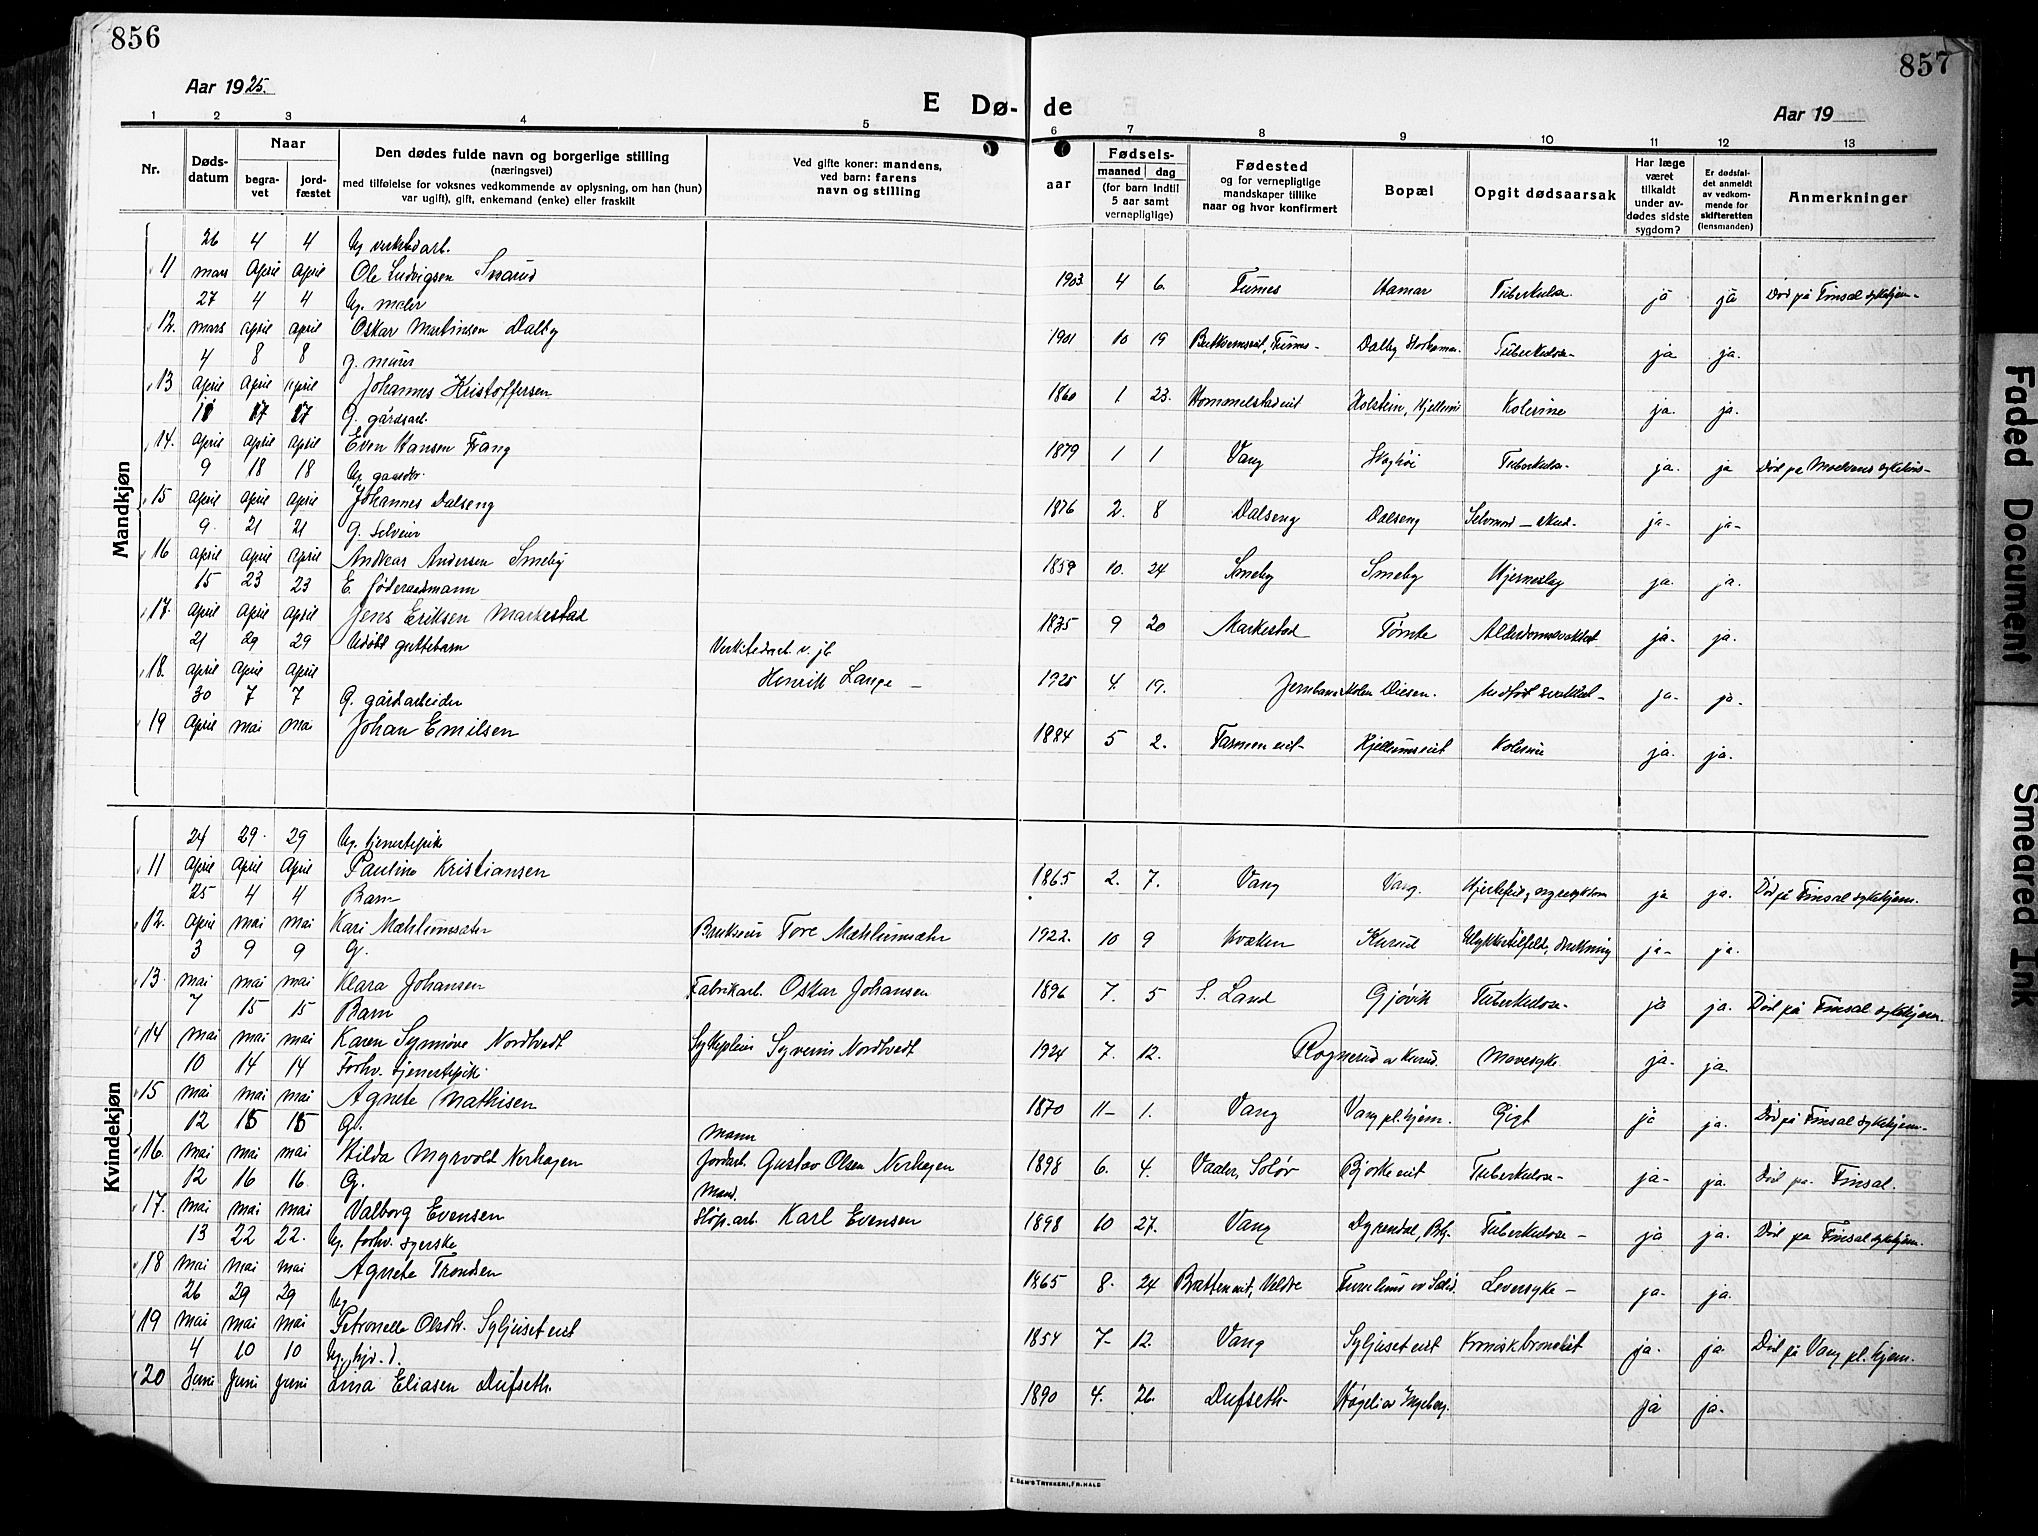 856
Aar 1925.
E Dø-
1 2 3 4 5
Nr.
Døds-
datum
Naar
begra-
vet
jord-
fæstet
Den dødes fulde navn og borgerlige stilling
(næringsvei)
med tilføielse for voksnes vedkommende av oplysning, om han (hun)
var ugift), gift, enkemand (enke) eller fraskilt
Ved gifte koner: mandens,
ved barn: farens
navn og stilling
Mandkjøn
26 4 4 Ug. verkstedarb.
11 mars April April Ole Ludvigsen Snarud
27 4 4 Ug. maler
12. mars april april Oskar Martinsen Dalby
4 8 8 g. murer
13 April April April Johannes Kristoffersen
11 17 17 G. gårdsarb.
14. April April April Even Hansen Frang
9 18 18 Ug. gaardbr.
15 April April April Johannes Dalseng
9. 21 21 G. selveier
16 April April April Andreas Andersen Smeby
15 23 23 E. føderaadmann
17. April April April Jens Eriksen Markestad
21 29 29 Udøbt guttebarn Verkstedarb. v. jb.
18. April April April Henrik Lange –
30 7 7 G. gårdarbeider
19 April mai mai Johan Emilsen
Kvindekjøn
24 29. 29 Ug. tjenestepik
11 April April April Pauline Kristiansen
25 4 4 Barn
12. April mai mai Kari Mæhlumsæter Brukseier Tore Mæhlumsæter
3 9 9 G.
13. mai mai mai Klara Johansen Fabrikarb. Oskar Johansen
7 15 15 Barn
14 mai mai mai Karen Synnøve Nordtvedt Sykepleier Syverin Nordtvedt
10 14 14 Forhv. tjenestepik.
15 mai mai mai Agnete Mathisen
12 15 15 G. Mann
16. mai mai mai Hilda Myrvold Nerhagen Jordarb. Gustav Olsen Nerhagen
12 16 16. G. Mand.
17. mai mai mai Valborg Evensen Karl Evensen
13 22 22. Ug. forhv. syerske
18 mai mai mai Agnete Trondsen
26 29 29 Ug
19 mai mai mai Petronelle Olsdt. Syljuset eiet
4 10 10
20 Juni Juni Juni Lina Eliasen Dufseth.
857
de
Aar 19
6 7 8 9 10 11 12 13
aar
Fødsels-
maaned dag
(for barn indtil
5 aar samt
vernepligtige)
Fødested
og for vernepligtige
mandskaper tillike
naar og hvor konfirmert
Bopæl
Opgit dødsaarsak
Har læge
været
tilkaldt
under av-
dødes sidste
sygdom?
Er dødsfal-
det anmeldt
av vedkom-
mende for
skifteretten
(lensmanden)
Anmerkninger
1903 4 6. Furnes Hamar Tuberkulose. ja ja Død på Finsal sykehjem-
1901 10 19 Furnes- Dalby Tuberkulose- ja ja.
1860 1 23. Hommelstad eiet Holstein, Kjellum Kolerine ja. ja.
1879 1 1 Vang Tuberkulose- ja. ja
1876 2. 8 Dalseng Dalseng Selvmord – skud- ja- ja-
1859 10. 24 Smeby Smeby Hjerneslag ja. ja.
1835 9 20 Markestad Tømte Alderdomssvakhet ja- ja.
1925 4. 19. Disen. Medfødt svakhet- ja- ja-
1884 5 2. Kjellumseiet Kolerine ja. ja.
1865 2. 7. Vang Vang. ja ja. Død på Finsal sykehjem.
1922. 10 9 Kvæken Kurud Ulykkestilfelde, drukning ja- ja.
1896 7. 5 S. Land Gjøvik Tuberkulose- ja ja. Død på Finsal sykehjem.
1924 7. 12. Rognerud av Kurud. Mavesyke ja- ja.
1870 11– 1. Vang Vang pl. hjem. Gigt ja ja. Død på Finsal sykehjem-
1898 6. 4. Vaaler, Solør Bjørke eiet Tuberkulose- ja- ja. Død på Finsal.
1898 10 27. Vang Tuberkulose – ja ja. Død på Finsal sykehjem.
1865 8. 24 Leversyke – ja- ja.
1854 7– 12. Vang Syljuset eiet Kronisk bronchit ja. ja Død på Vang pl. hjem.
1890 4. 26. Dufseth- ja ja.
TRYKKERI, FR.HALD
Faded Document
Smeared Ink